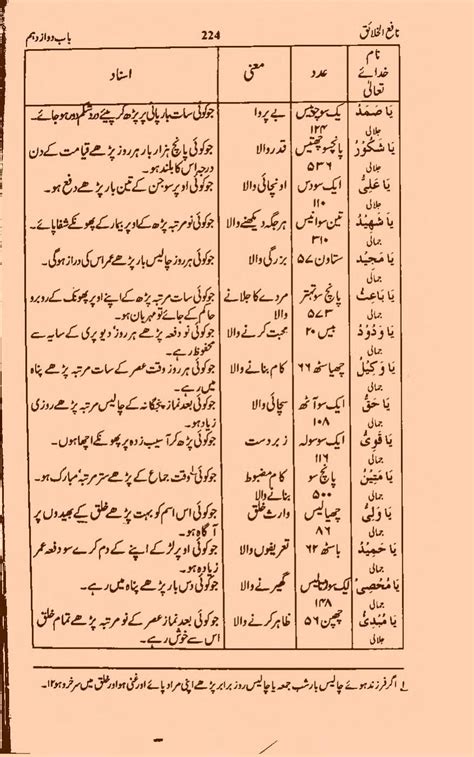 نافع الخلائق 224 باب دوازدہم
نام خدائے تعالیٰ عدد معنی اسناد
یَا صَمَدُ جلالی یک سو چوبیس ۱۲۴ بے پروا جو کوئی سات بار پانی پر پڑھ کر پیئے درد شکم دور ہو جائے۔
یَا شَکُوْرُ جلالی پانچسو چھتیس ۵۳۶ قدر والا جو کوئی پانچ ہزار بار ہر روز پڑھے قیامت کے دن
درجہ اس کا بلند ہو۔
یَا عَلِیُّ جلالی ایک سو دس ۱۱۰ اونچائی والا جو کوئی اوپر سوجن کے تین بار پڑھے دفع ہو۔
یَا شَهِیْدُ جمالی تین سو انیس ۳۱۰ ہر جگہ دیکھنے والا جو کوئی نو مرتبہ پڑھ کے اوپر بیمار کے پھونکے شفا پائے۔
یَا مَجِیْدُ جمالی ستاون ۵۷ بزرگی والا جو کوئی ہر روز چالیس بار پڑھے عمر اس کی دراز ہوگی۔
یَا بَاعِثُ جمالی پانچ سو تہتر ۵۷۳ مردے کا جلانے والا جو کوئی سات مرتبہ پڑھ کے اپنے اوپر پھونک کے روبرو
حاکم کے جائے تو مہربان ہو۔
یَا وَدُوْدُ جمالی بیس ۲۰ محبت کرنے والا جو کوئی نو دفعہ پڑھے ہر روز دیو پری کے سایہ سے
محفوظ رہے۔
یَا وَکِیْلُ جمالی چھیاسٹھ ۶۶ کام بنانے والا جو کوئی ہر روز وقت عصر کے سات مرتبہ پڑھے پناہ
میں رہے۔
یَا حَقُّ جمالی ایک سو آٹھ ۱۰۸ سچائی والا جو کوئی بعد نماز پنجگانہ کے چالیس بار پڑھے روزی
زیادہ ہو۔
یَا قَوِیُّ جمالی ایک سو سولہ ۱۱۶ زبردست جو کوئی پڑھ کر آسیب زدہ پر پھونکے اچھا ہوں۔
یَا مَتِیْنُ جمالی پانچ سو ۵۰۰ کام مضبوط بنانے والا جو کوئی وقت جماع کے پڑھے ستر مرتبہ مبارک ہو۔
یَا وَلِیُّ جمالی چھیالیس ۸۶ وارث خلق جو کوئی اس اسم کو بہت پڑھے خلق کے بھیدوں پر
آگاہ ہو۔
یَا حَمِیْدُ جمالی باسٹھ ۶۲ تعریفوں والا جو کوئی اوپر لڑکے اپنے کے دم کرے سو دفعہ عمر
زیادہ ہو۔
یَا مُحْصِیُ جمالی ایک سو چالیس ۱۴۸ گھیرنے والا جو کوئی دس بار پڑھے پناہ میں رہے۔
یَا مُبْدِیُٔ جلالی چھپن ۵۶ ظاہر کرنے والا جو کوئی بعد نماز عصر کے نو مرتبہ پڑھے تمام خلق
اس سے خوش رہے۔
اگر فرزند ہوئے چالیس بار شب جمعہ یا چالیس روز برابر پڑھے اپنی مراد پائے اور غنی ہو اور خلق میں سرخرو ہو ۱۲۔